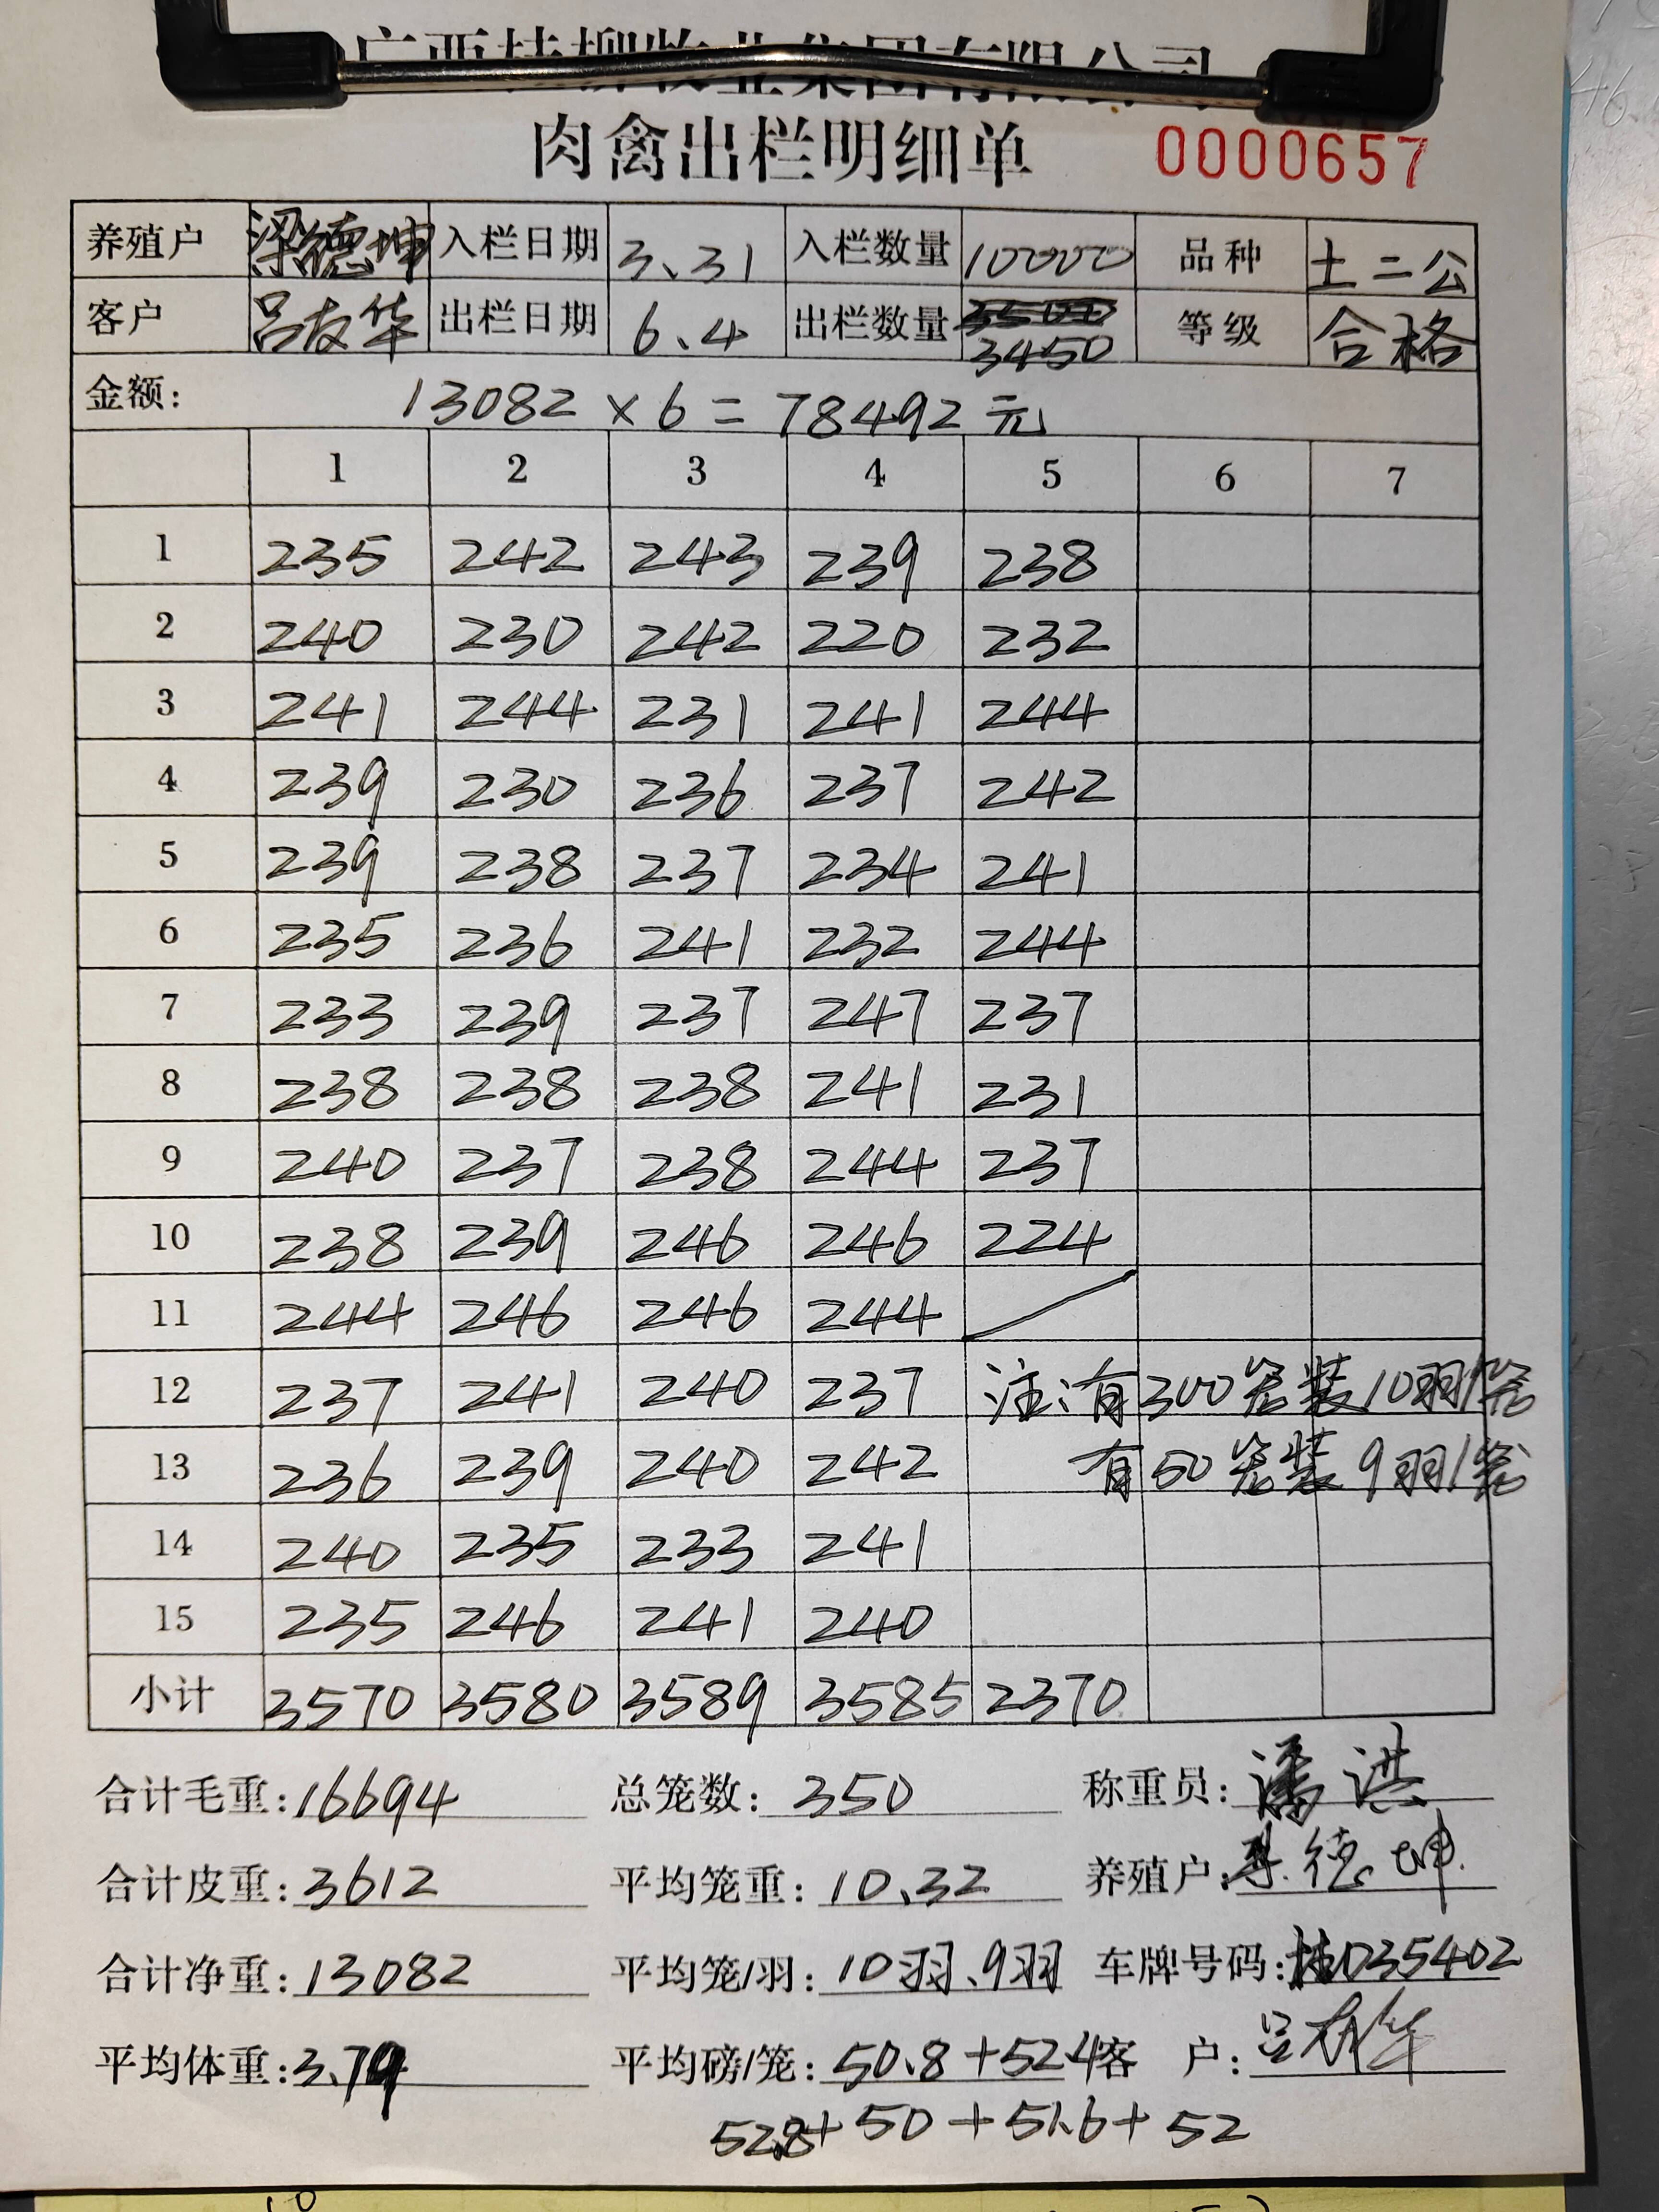 肉禽出栏明细单 0000657
养殖户 梁德坤 入栏日期 3、31 入栏数量 10000 品种 土二公
客户 吕友华 出栏日期 6、4 出栏数量 3450 等级 合格
金额: 13082 × 6 = 78492 元
1 2 3 4 5 6 7
1 235 242 243 239 238
2 240 230 242 220 232
3 241 244 231 241 244
4 239 230 236 237 242
5 239 238 237 234 241
6 235 236 241 232 244
7 233 239 237 247 237
8 238 238 238 241 231
9 240 237 238 244 237
10 238 239 246 246 224
11 244 246 246 244
12 237 241 240 237 注:有300笼装10羽/笼
13 236 239 240 242 有50笼装9羽/笼
14 240 235 233 241
15 235 246 241 240
小计 3570 3580 3589 3585 2370
合计毛重: 16694 总笼数: 350 称重员: 潘洪
合计皮重: 3612 平均笼重: 10.32 养殖户: 梁德坤
合计净重: 13082 平均笼/羽: 10羽、9羽 车牌号码: 桂D35402
平均体重: 3.79 平均磅/笼: 50.8+52.4 客户: 吕友华
52.8+50+51.6+52